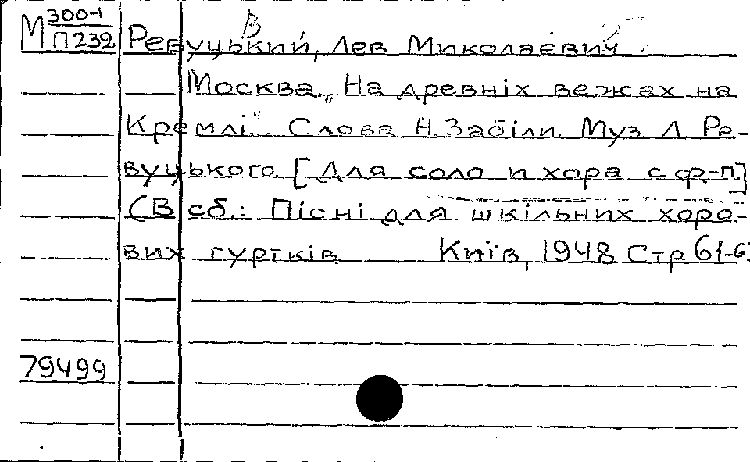 М 300-1
П232
В
Ревуцький, Лев Миколаєвич
Москва „На древніх вежах на
Кремлі" Слова Н. Забіли Муз Л Ре-
вуцького [Для соло и хора с ф-п]
(В сб.: Пісні для шкільних хоро-
вих гуртків Київ, 1948 Стр 61-6
79499